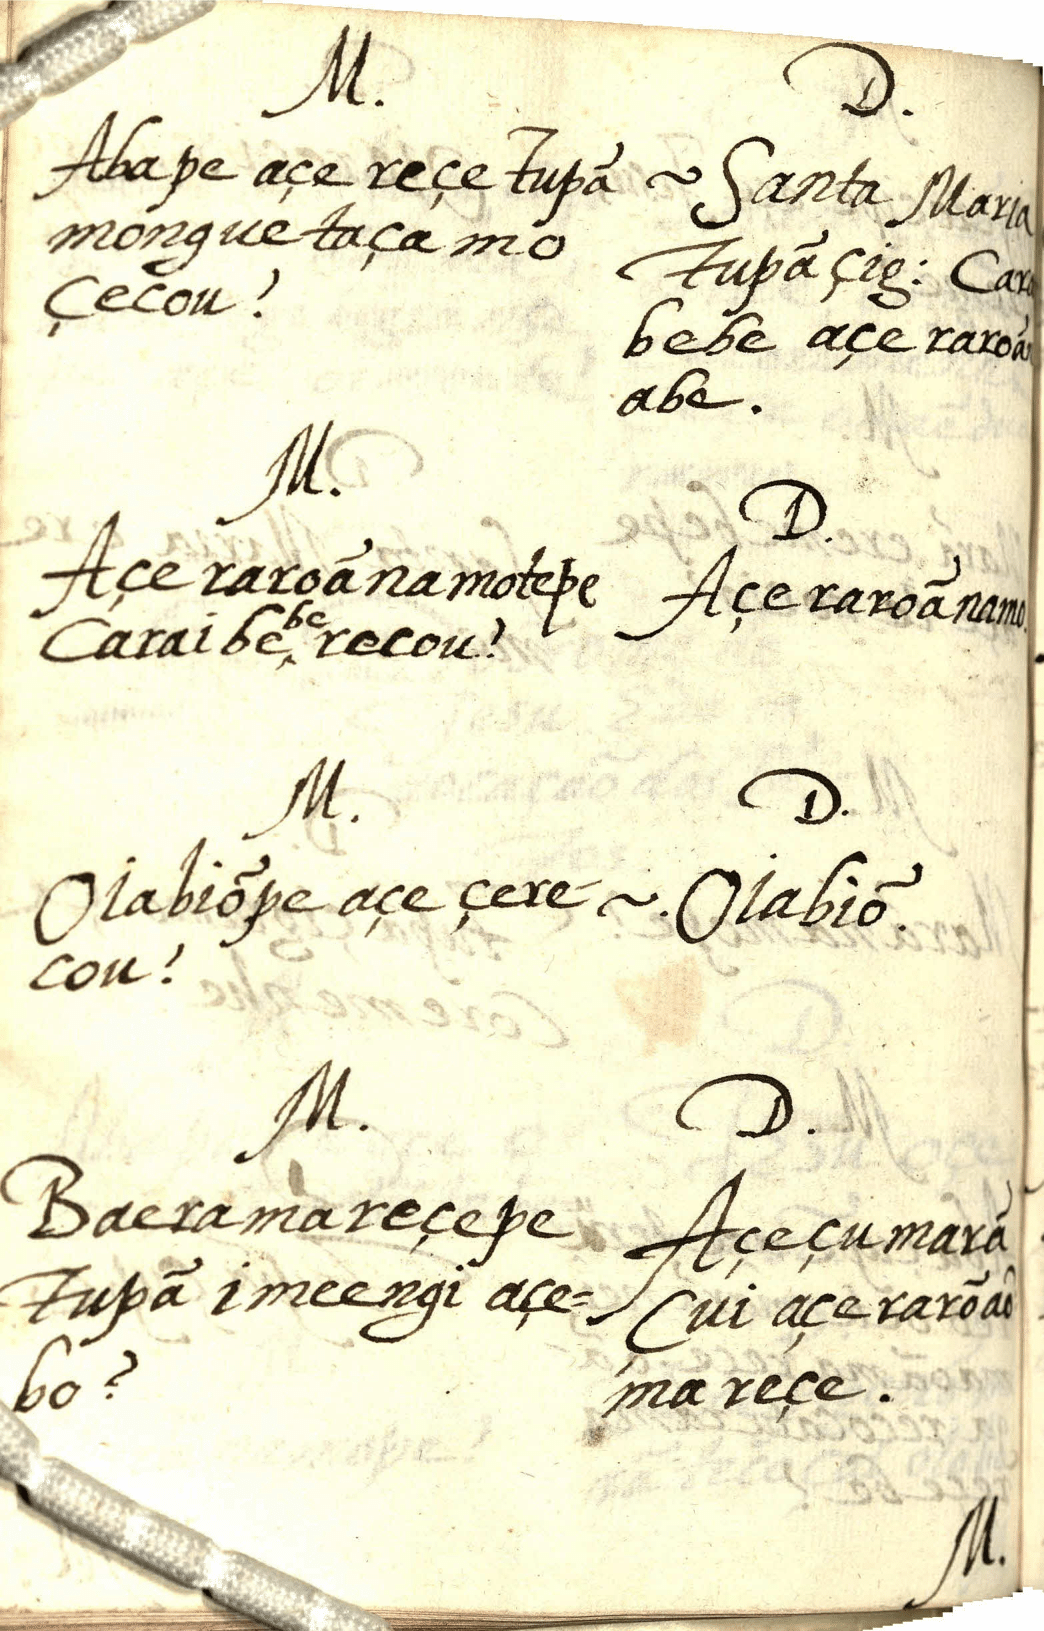 M.
Abape açe reçe Tupã
monguetaçamo
çecou?
D.
~ Santa Maria
Tupã çig: Cara
bebe açe raroã
abe.
M.
Açe raroãnamotepe
Caraibebe recou?
D.
Açe raroãnamo.
M.
Oiabiõpe açe çere-
cou?
D.
~. Oiabiõ.
M.
Baeramareçepe
Tupã imeengi açe=
bo?
D.
Açeçumarã
Cui açe raroãõ
mareçe.
M.